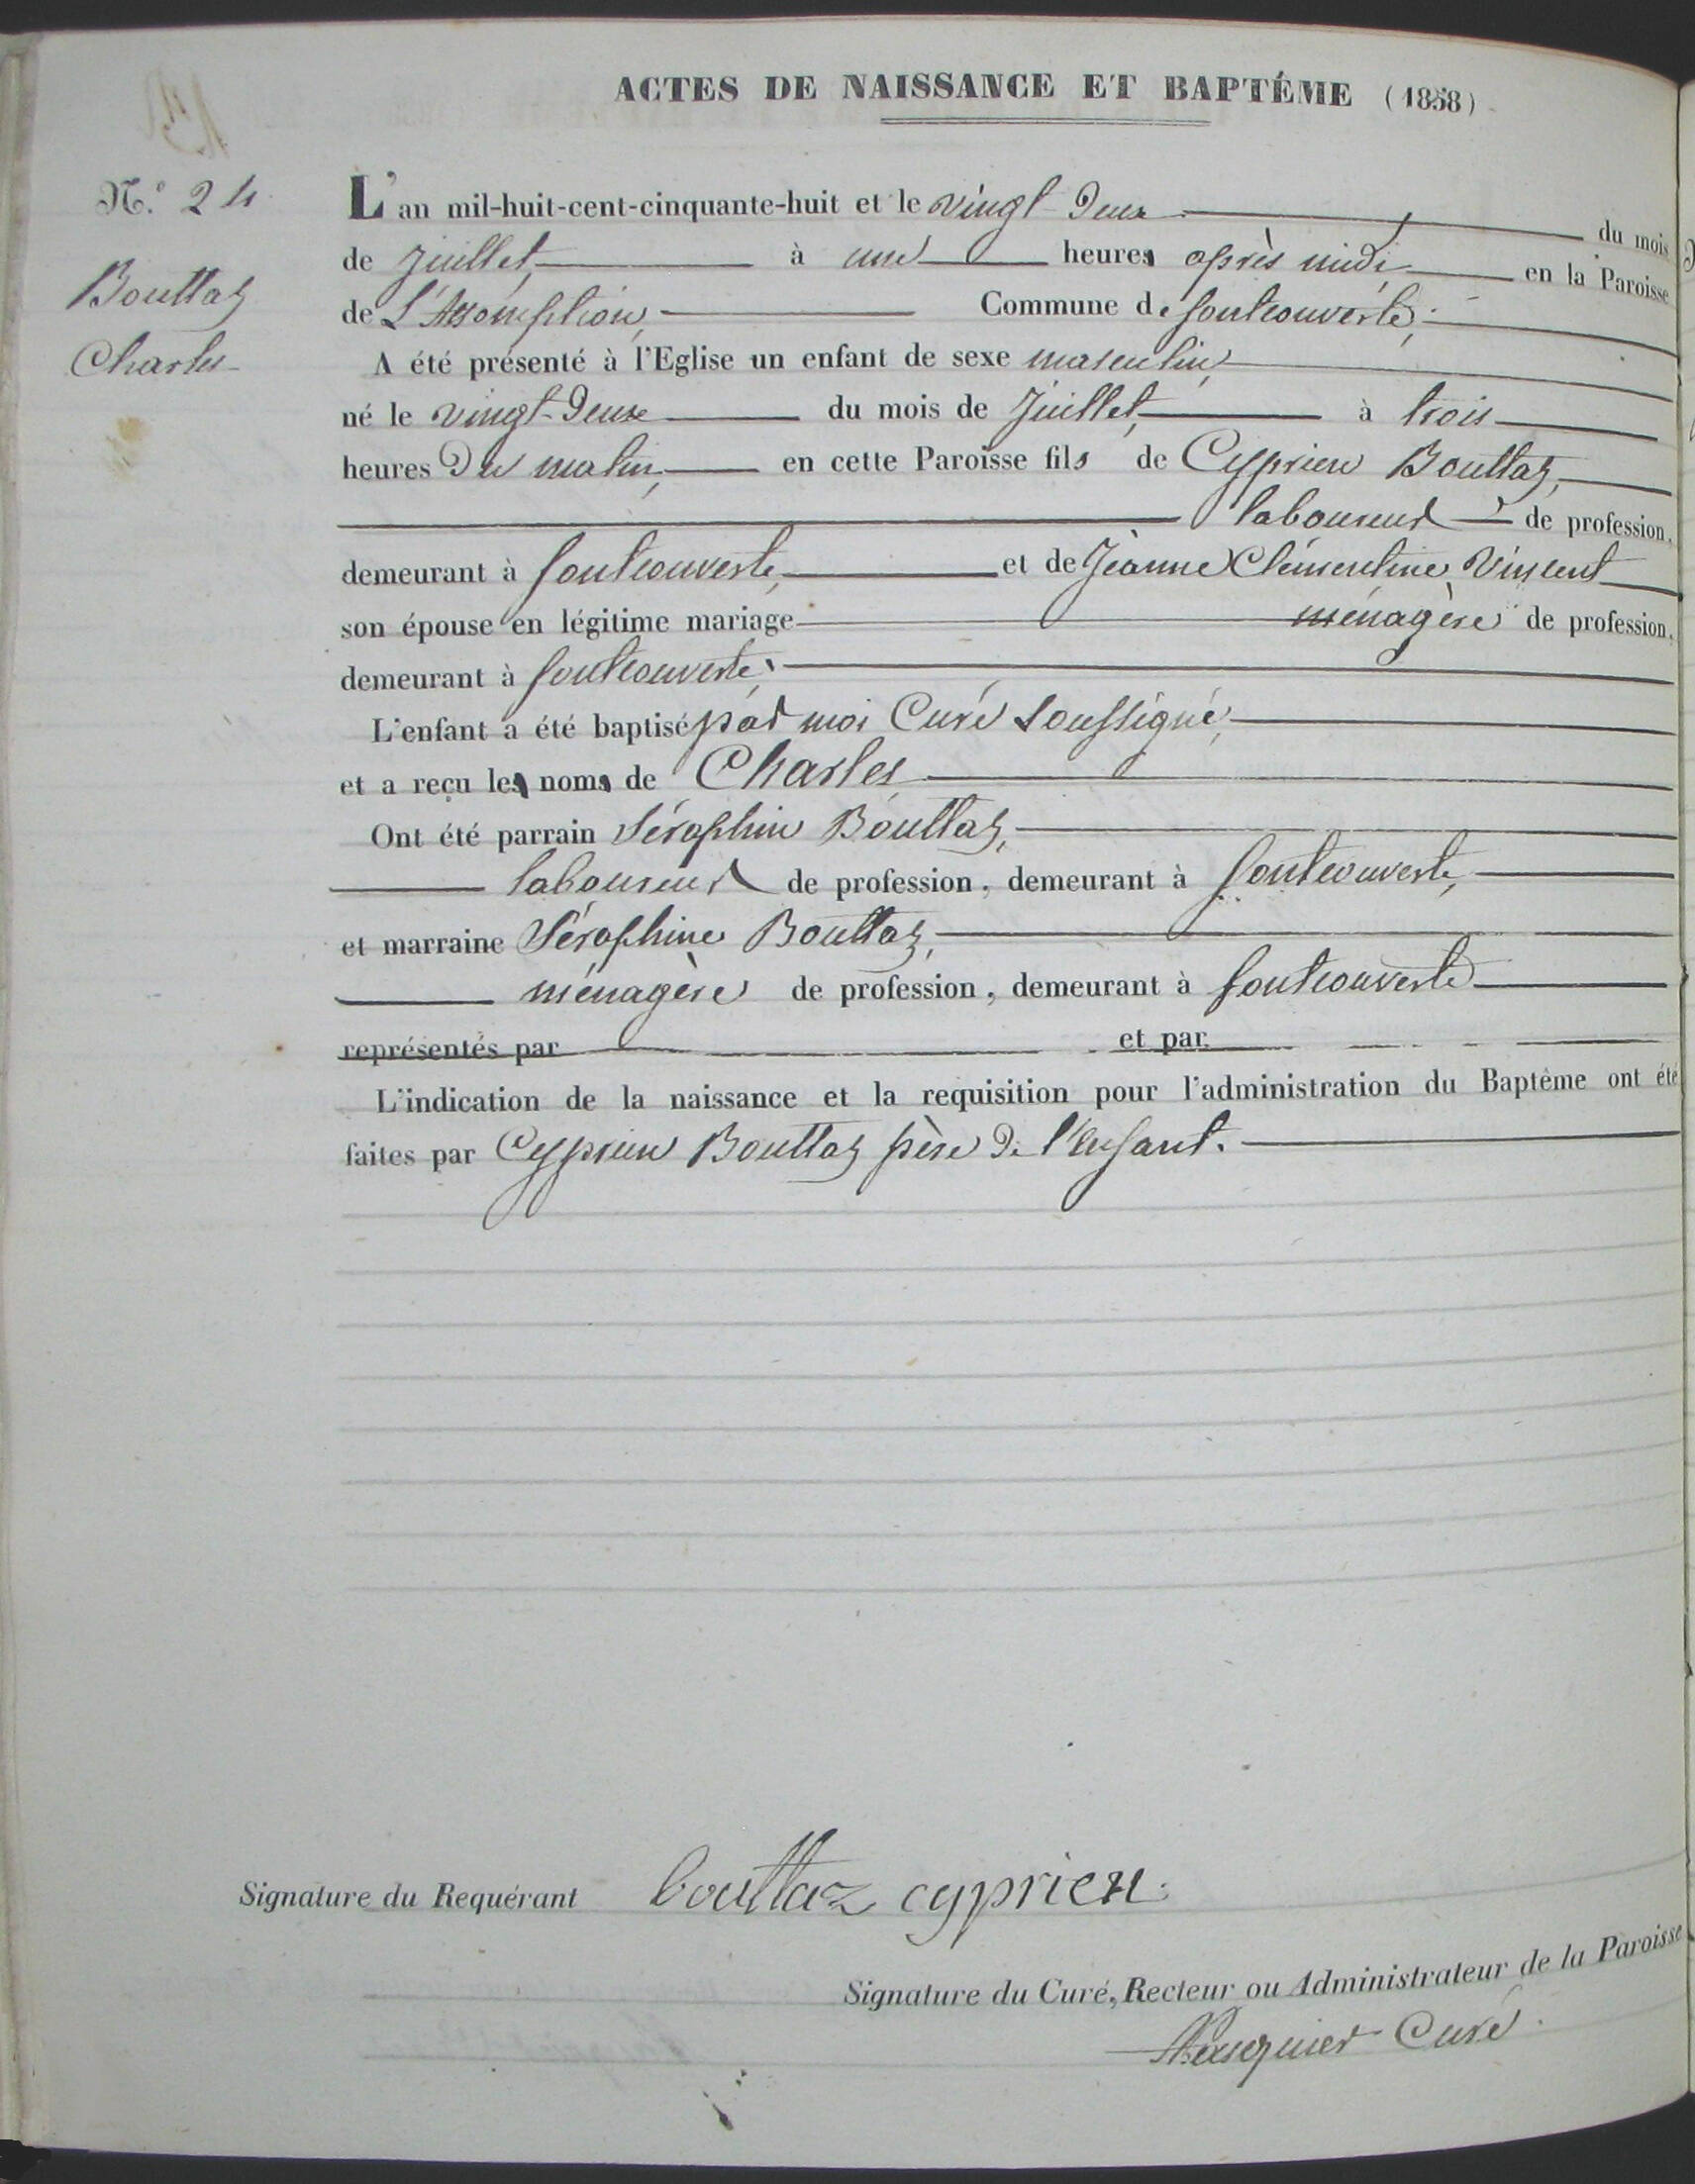 ACTES DE NAISSANCE ET BAPTÉME (1858)
N.° 24
Bouttaz
Charles
L'an mil-huit-cent-cinquante-huit et le vingt-deux du mois
de Juillet, à une heures après midi en la Paroisse
de L'Assomption, Commune de fontcouverte;
A été présenté à l'Eglise un enfant de sexe masculin,
né le vingt-deux du mois de Juillet, à trois
heures du matin, en cette Paroisse fils de Cyprien Bouttaz,
laboureur de profession,
demeurant à fontcouverte, et de Jeanne Clémentine Vincent
son épouse en légitime mariage ménagère de profession,
demeurant à fontcouverte;
L'enfant a été baptisé par moi Curé soussigné,
et a reçu les noms de Charles
Ont été parrain Séraphin Bouttaz,
laboureur de profession, demeurant à fontcouverte,
et marraine Séraphine Bouttaz,
ménagère de profession, demeurant à fontcouverte
représentés par et par
L'indication de la naissance et la requisition pour l'administration du Baptême ont été
faites par Cyprien Bouttaz père de l'enfant.
Signature du Requérant bouttaz cyprien
Signature du Curé, Recteur ou Administrateur de la Paroisse
Curé